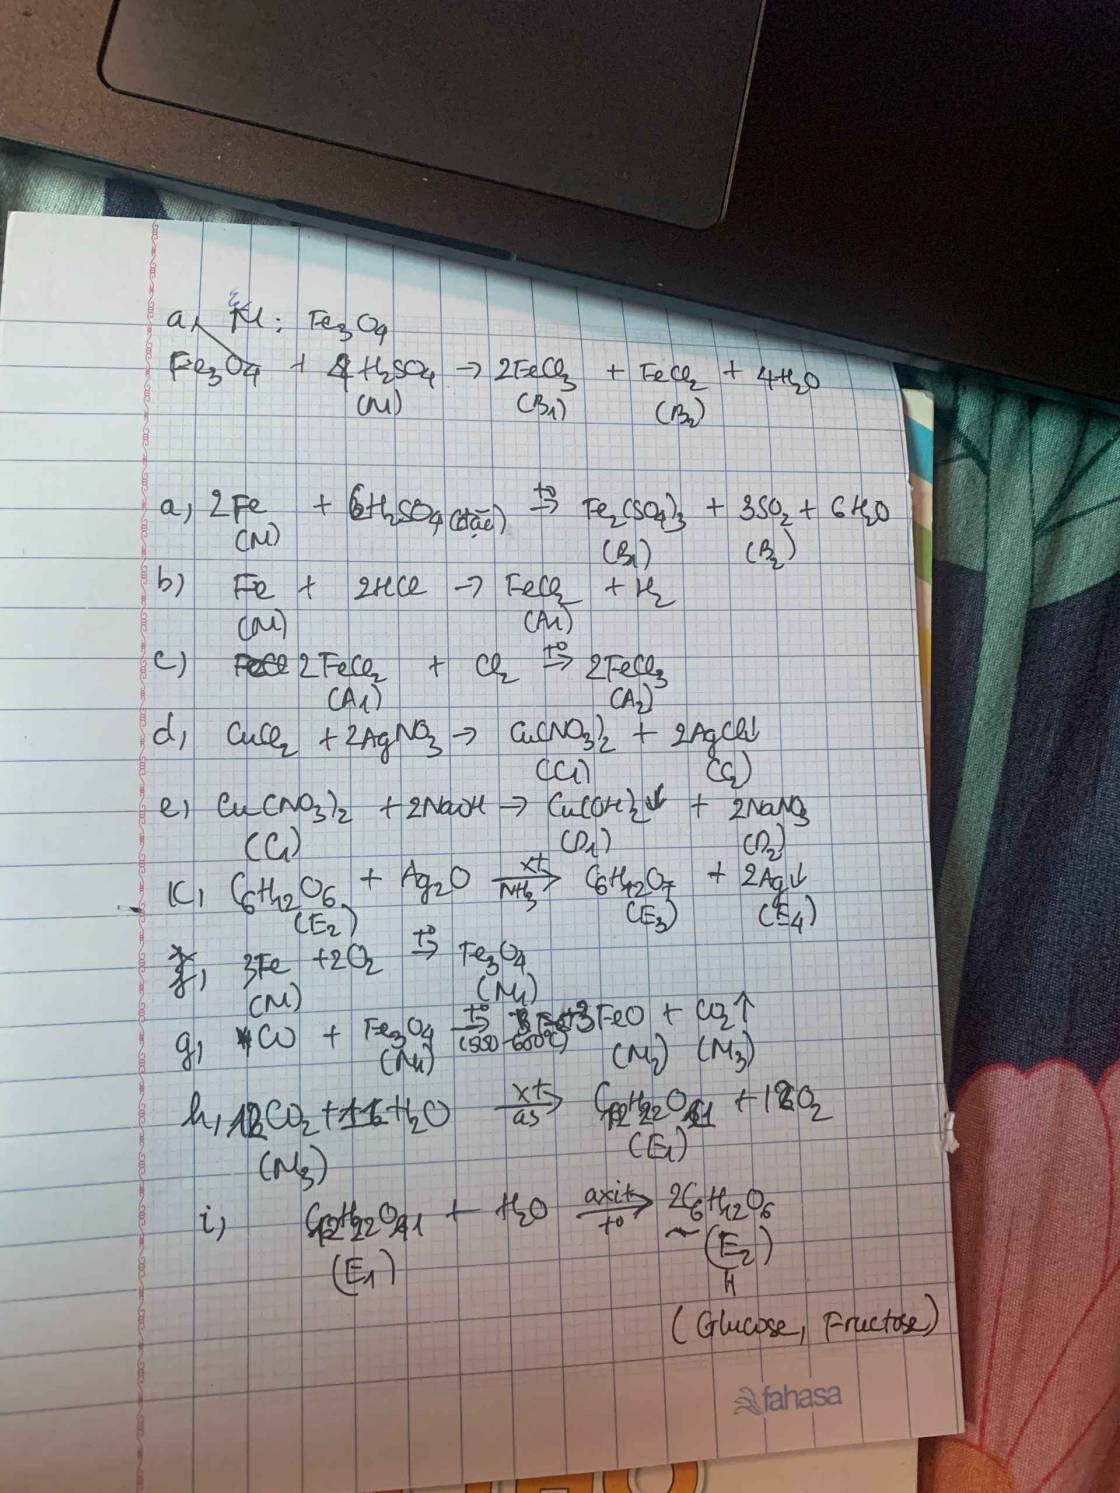 a, M: Fe3O4
Fe3O4 + 4H2SO4 → 2FeCl3 + FeCl2 + 4H2O
(M) (B1) (B2)
a, 2Fe + 6H2SO4 (đặc) t° → Fe2(SO4)3 + 3SO2 + 6H2O
(M) (B1) (B2)
b) Fe + 2HCl → FeCl2 + H2
(M) (A1)
c) 2FeCl2 + Cl2 t° → 2FeCl3
(A1) (A2)
d, CuCl2 + 2AgNO3 → Cu(NO3)2 + 2AgCl↓
(C1) (C2)
e, Cu(NO3)2 + 2NaOH → Cu(OH)2↓ + 2NaNO3
(C1) (D1) (D2)
K, C6H12O6 + Ag2O xt → NH3 C6H12O7 + 2Ag↓
(E2) (E3) (E4)
f, 3Fe + 2O2 t° → Fe3O4
(M) (M1)
g, CO + Fe3O4 t° → (500-600°C) 3FeO + CO2↑
(M1) (M2) (M3)
h, 12CO2 + 11H2O xt → as C12H22O11 + 12O2
(M3) (E1)
i, C12H22O11 + H2O axit → t° 2C6H12O6
(E1) (E2)
(Glucose, Fructose)
fahasa